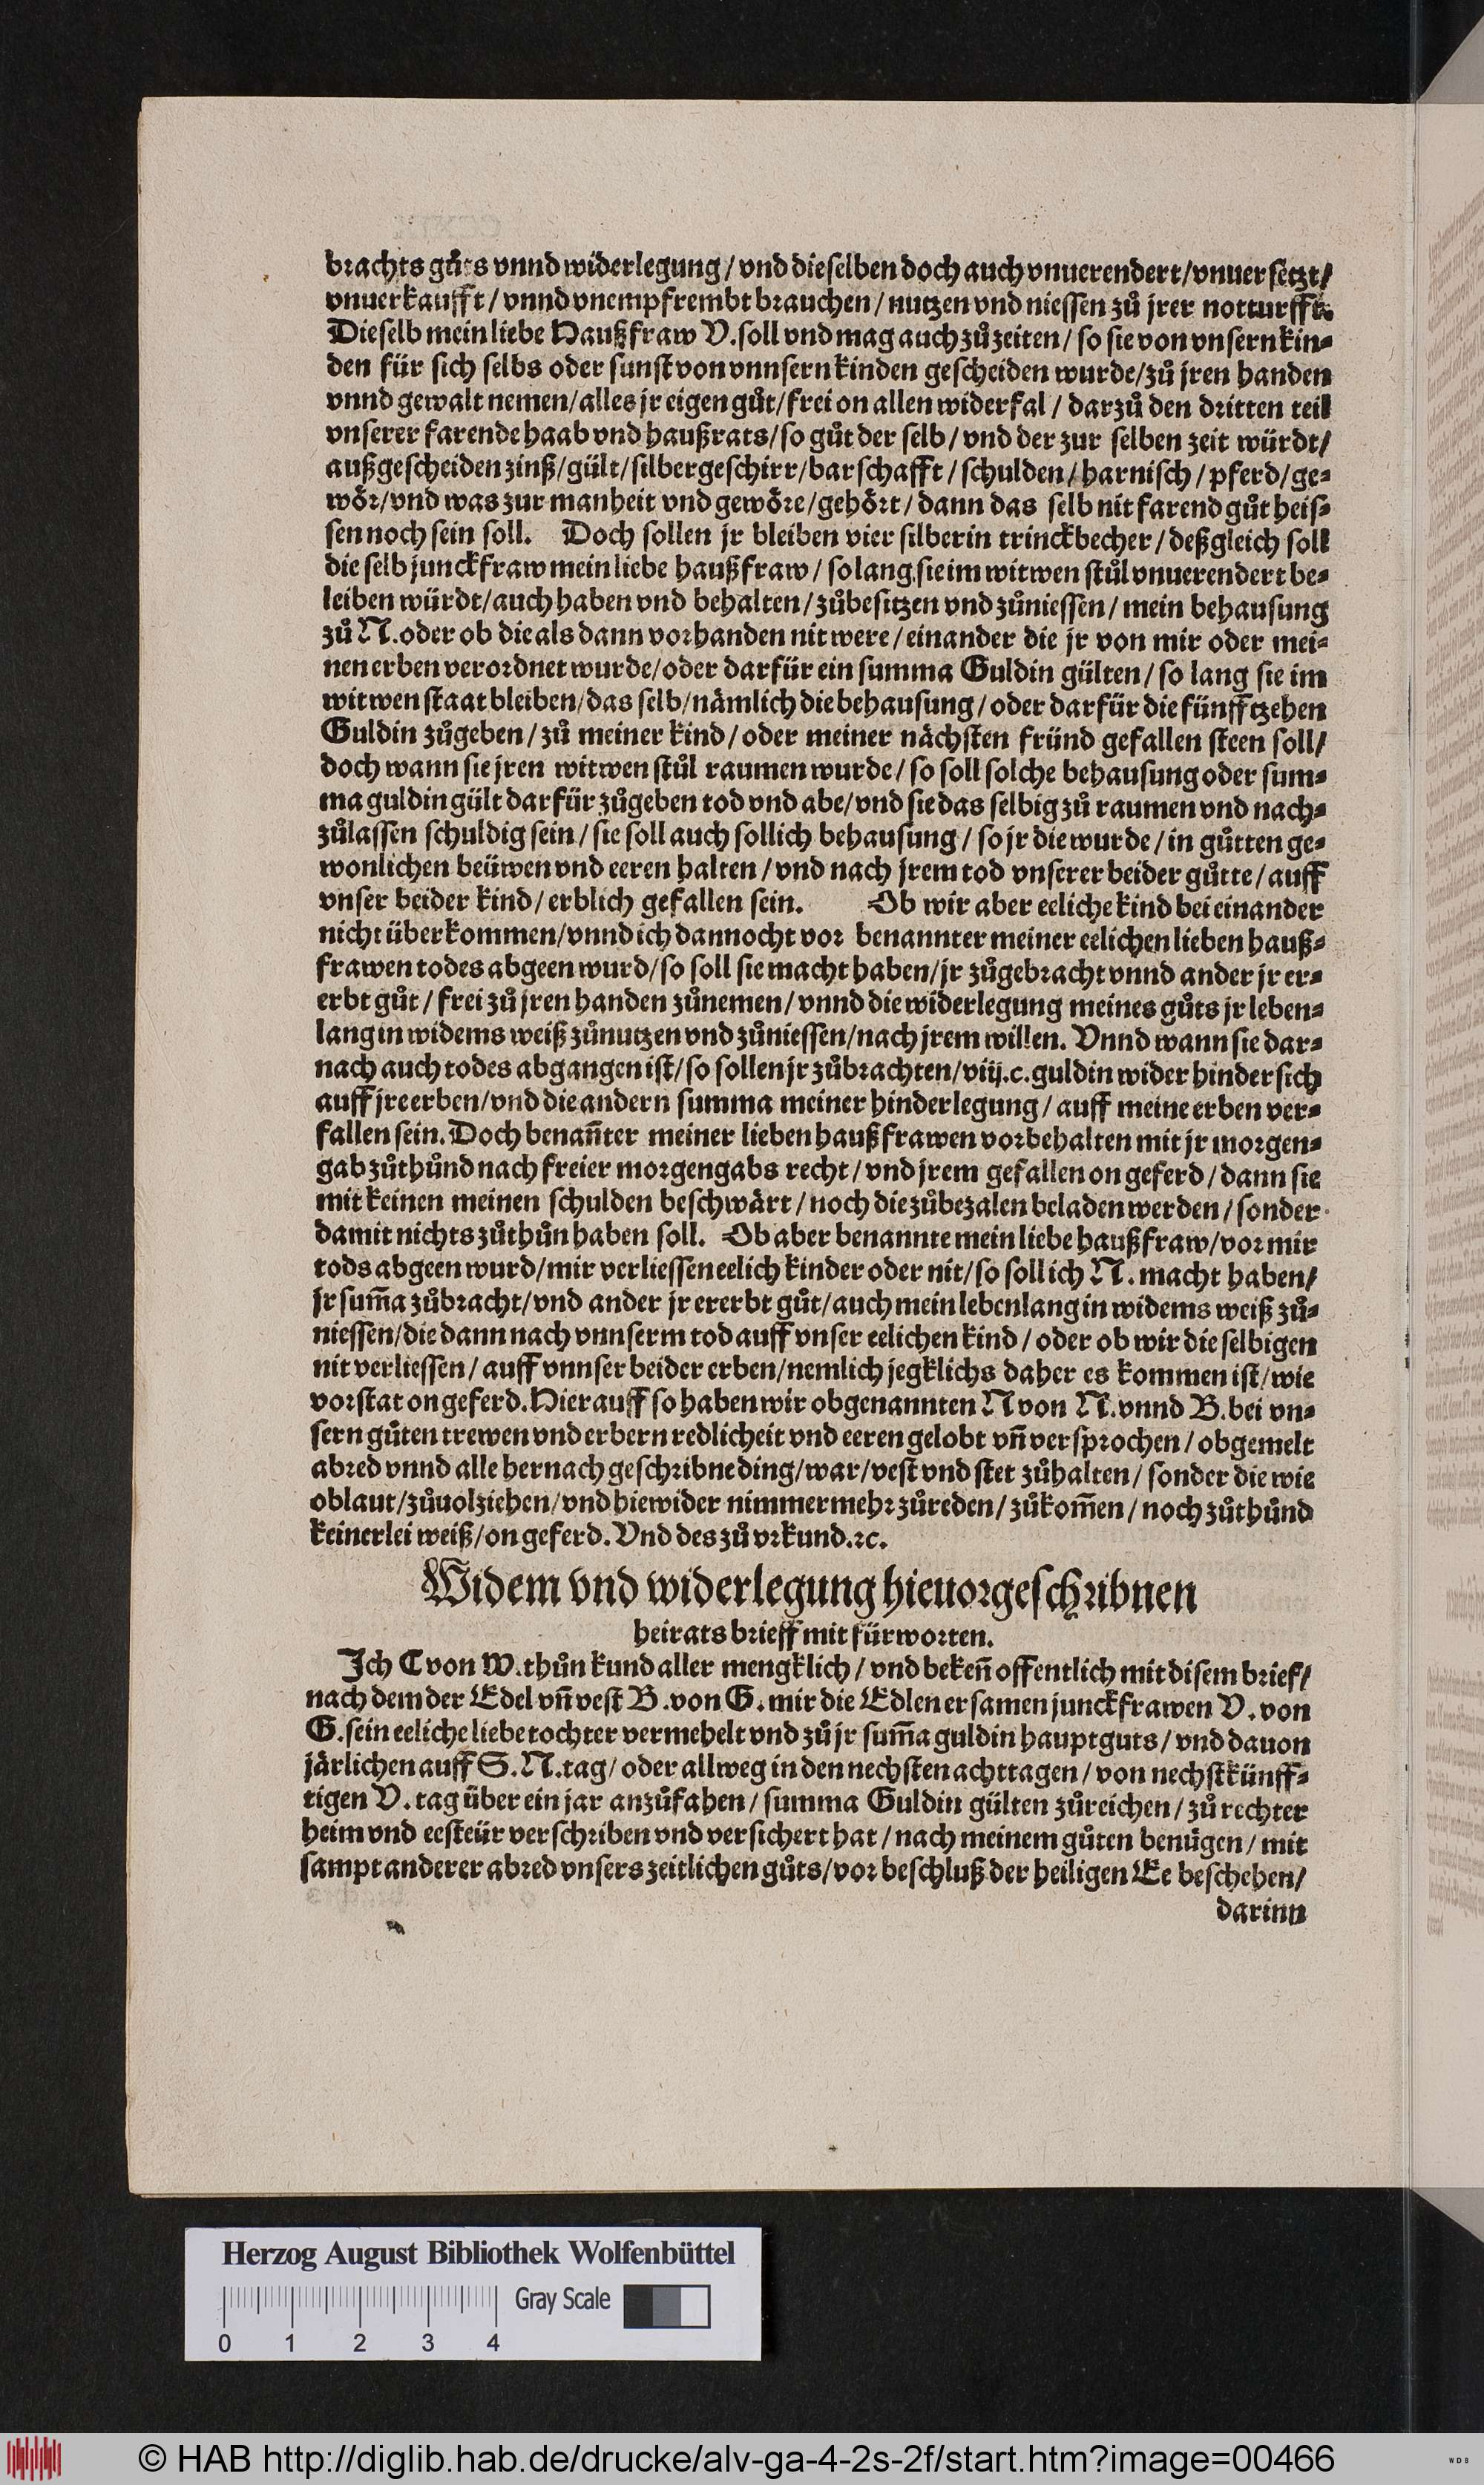 brachts gůts vnnd widerlegung / vnd dieselben doch auch vnuerendert / vnuersetzt /
vnuerkaufft / vnnd vnempfrembt brauchen / nutzen vnd niessen zů jrer notturfft.
Dieselb mein liebe Haußfraw V. soll vnd mag auch zůzeiten / so sie von vnsern kin⸗
den für sich selbs oder sunst von vnnsern kinden gescheiden wurde / zů jren handen
vnnd gewalt nemen / alles jr eigen gůt / frei on allen widerfal / darzů den dritten teil
vnserer farende haab vnd haußrats / so gůt der selb / vnd der zur selben zeit würdt /
außgescheiden zinß / gült / silbergeschirr / barschafft / schulden / harnisch / pferd / ge⸗
wör / vnd was zur manheit vnd gewöre / gehört / dann das selb nit farend gůt heis⸗
sen noch sein soll. Doch sollen jr bleiben vier silberin trinckbecher / deßgleich soll
die selb junckfraw mein liebe haußfraw / so lang sie im witwen stůl vnuerendert be⸗
leiben würdt / auch haben vnd behalten / zůbesitzen vnd zůniessen / mein behausung
zů N. oder ob die als dann vorhanden nit were / ein ander die jr von mir oder mei⸗
nen erben verordnet wurde / oder darfür ein summa Guldin gülten / so lang sie im
witwen staat bleiben / das selb / nämlich die behausung / oder darfür die fünfftzehen
Guldin zůgeben / zů meiner kind / oder meiner nächsten fründ gefallen steen soll /
doch wann sie jren witwen stůl raumen wurde / so soll solche behausung oder sum⸗
ma guldin gült darfür zůgeben tod vnd abe / vnd sie das selbig zů raumen vnd nach⸗
zůlassen schuldig sein / sie soll auch sollich behausung / so jr die wurde / in gůtten ge⸗
wonlichen beüwen vnd eeren halten / vnd nach jrem tod vnserer beider gůtte / auff
vnser beider kind / erblich gefallen sein. Ob wir aber eeliche kind bei einander
nicht überkommen / vnnd ich dannocht vor benannter meiner eelichen lieben hauß⸗
frawen todes abgeen wurd / so soll sie macht haben / jr zůgebracht vnnd ander jr er⸗
erbt gůt / frei zů jren handen zůnemen / vnnd die widerlegung meines gůts jr leben⸗
lang in widems weiß zůnutzen vnd zůniessen / nach jrem willen. Vnnd wann sie dar⸗
nach auch todes abgangen ist / so sollen jr zůbrachten / viij.c. guldin wider hindersich
auff jre erben / vnd die andern summa meiner hinderlegung / auff meine erben ver⸗
fallen sein. Doch benañter meiner lieben haußfrawen vorbehalten mit jr morgen⸗
gab zůthůnd nach freier morgengabs recht / vnd jrem gefallen on geferd / dann sie
mit keinen meinen schulden beschwärt / noch die zůbezalen beladen werden / sonder
damit nichts zůthůn haben soll. Ob aber benannte mein liebe haußfraw / vor mir
tods abgeen wurd / mir verliessen eelich kinder oder nit / so soll ich N. macht haben /
jr sum̃a zůbracht / vnd ander jr ererbt gůt / auch mein lebenlang in widems weiß zů⸗
niessen / die dann nach vnnserm tod auff vnser eelichen kind / oder ob wir die selbigen
nit verliessen / auff vnnser beider erben / nemlich jegklichs daher es kommen ist / wie
vorstat on geferd. Hierauff so haben wir obgenannten N von N. vnnd B. bei vn⸗
sern gůten trewen vnd erbern redlicheit vnd eeren gelobt vñ versprochen / obgemelt
abred vnnd alle hernach geschribne ding / war / vest vnd stet zůhalten / sonder die wie
oblaut / zůuolziehen / vnd hiewider nimmermehr zůreden / zůkom̃en / noch zůthůnd
keinerlei weiß / on geferd. Vnd des zů vrkund. ꝛc.
Widem vnd widerlegung hieuorgeschribnen
heirats brieff mit fürworten.
Ich C von W. thůn kund aller mengklich / vnd bekeñ offentlich mit disem brief /
nach dem der Edel vñ vest B. von G. mir die Edlen ersamen junckfrawen V. von
G. sein eeliche liebe tochter vermehelt vnd zů jr sum̃a guldin hauptguts / vnd dauon
järlichen auff S. N. tag / oder allweg in den nechsten acht tagen / von nechstkünff⸗
tigen V. tag über ein jar anzůfahen / summa Guldin gülten zůreichen / zů rechter
heim vnd eesteür verschriben vnd versichert hat / nach meinem gůten benügen / mit
sampt anderer abred vnsers zeitlichen gůts / vor beschluß der heiligen Ee beschehen /
darinn
Herzog August Bibliothek Wolfenbüttel
Gray Scale
0 1 2 3 4
© HAB http://diglib.hab.de/drucke/alv-ga-4-2s-2f/start.htm?image=00466
WDB